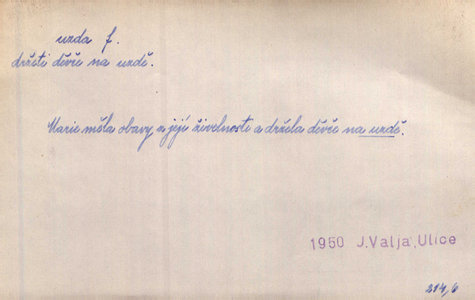 uzda f.
držeti děvče na uzdě.
Marie měla obavy z její živelnosti a držela děvče na uzdě.
1950 J.Valja, Ulice
214,6